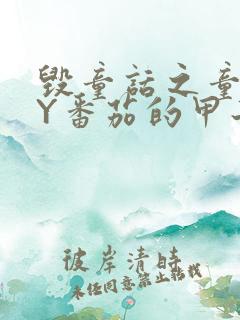 毁童话之童
Y番茄的甲
彼岸清时
未经同意禁止转载